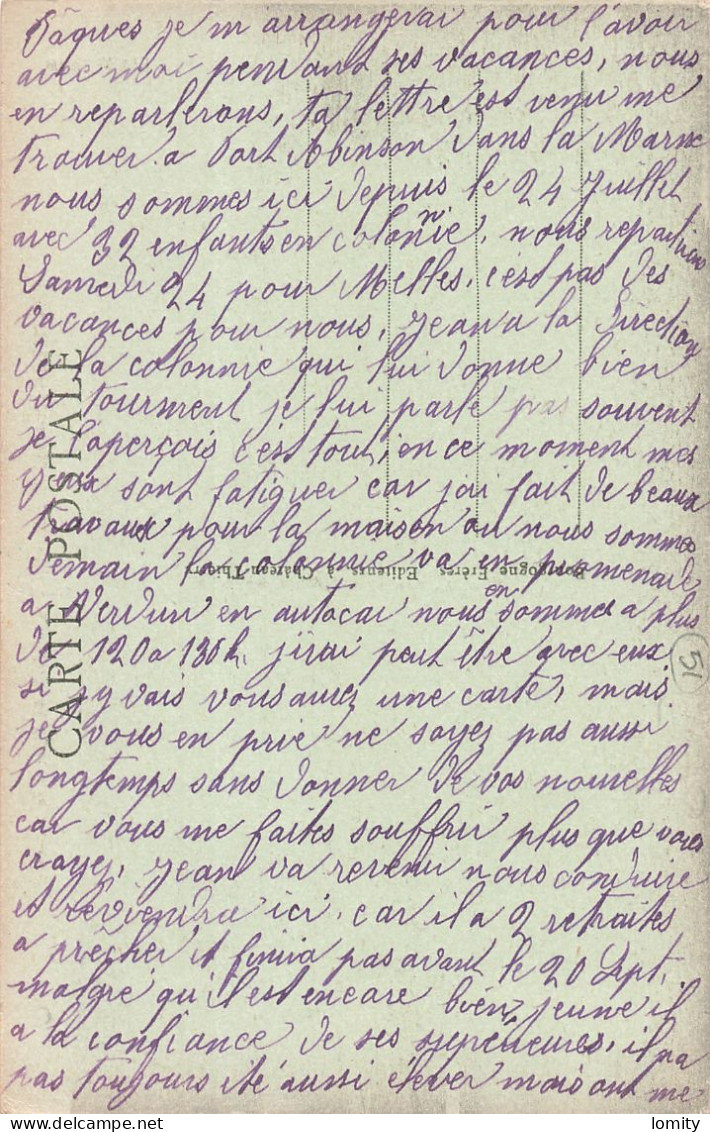 Pâques je m arrangerai pour l'avoir
avec moi pendant ses vacances, nous
en reparlerons, ta lettre est venu me
trouver a Port Abinson dans la Marne
nous sommes ici depuis le 24 Juillet
avec 32 enfants en colonnie, nous repartirons
Samedi 24 pour Melles, c'est pas des
vacances pour nous, Jean a la Direction
de la colonnie qui lui donne bien
du tourment je lui parle pas souvent
je l'aperçois c'est tout, en ce moment mes
yeux sont fatiguer car j'ai fait de beaux
travaux pour la maison ou nous sommes
demain la colonnie va en promenade
a Verdun en autocar nous en sommes a plus
de 120 a 130 k, j'irai peut être avec eux
si j y vais vous aurez une carte, mais
je vous en prie ne soyez pas aussi
longtemps sans donner de vos nouvelles
car vous me faites souffrir plus que vous
crayez, Jean va revenir nous conduire
et reviendra ici, car il a 2 retraites
a prêcher et finira pas avant le 20 Sept.
malgré qu'il est encare bien jeune il
a la confiance de ses supérieures, il na
pas toujours été aussi élever mais ont me
CARTE POSTALE
Bourgogne Frères Editeurs à Château-Thierry
51
lomity